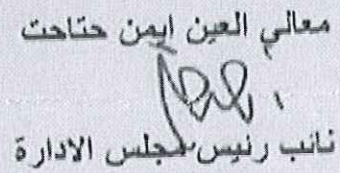 معالي العين ايمن حتاحت
نائب رئيس مجلس الادارة